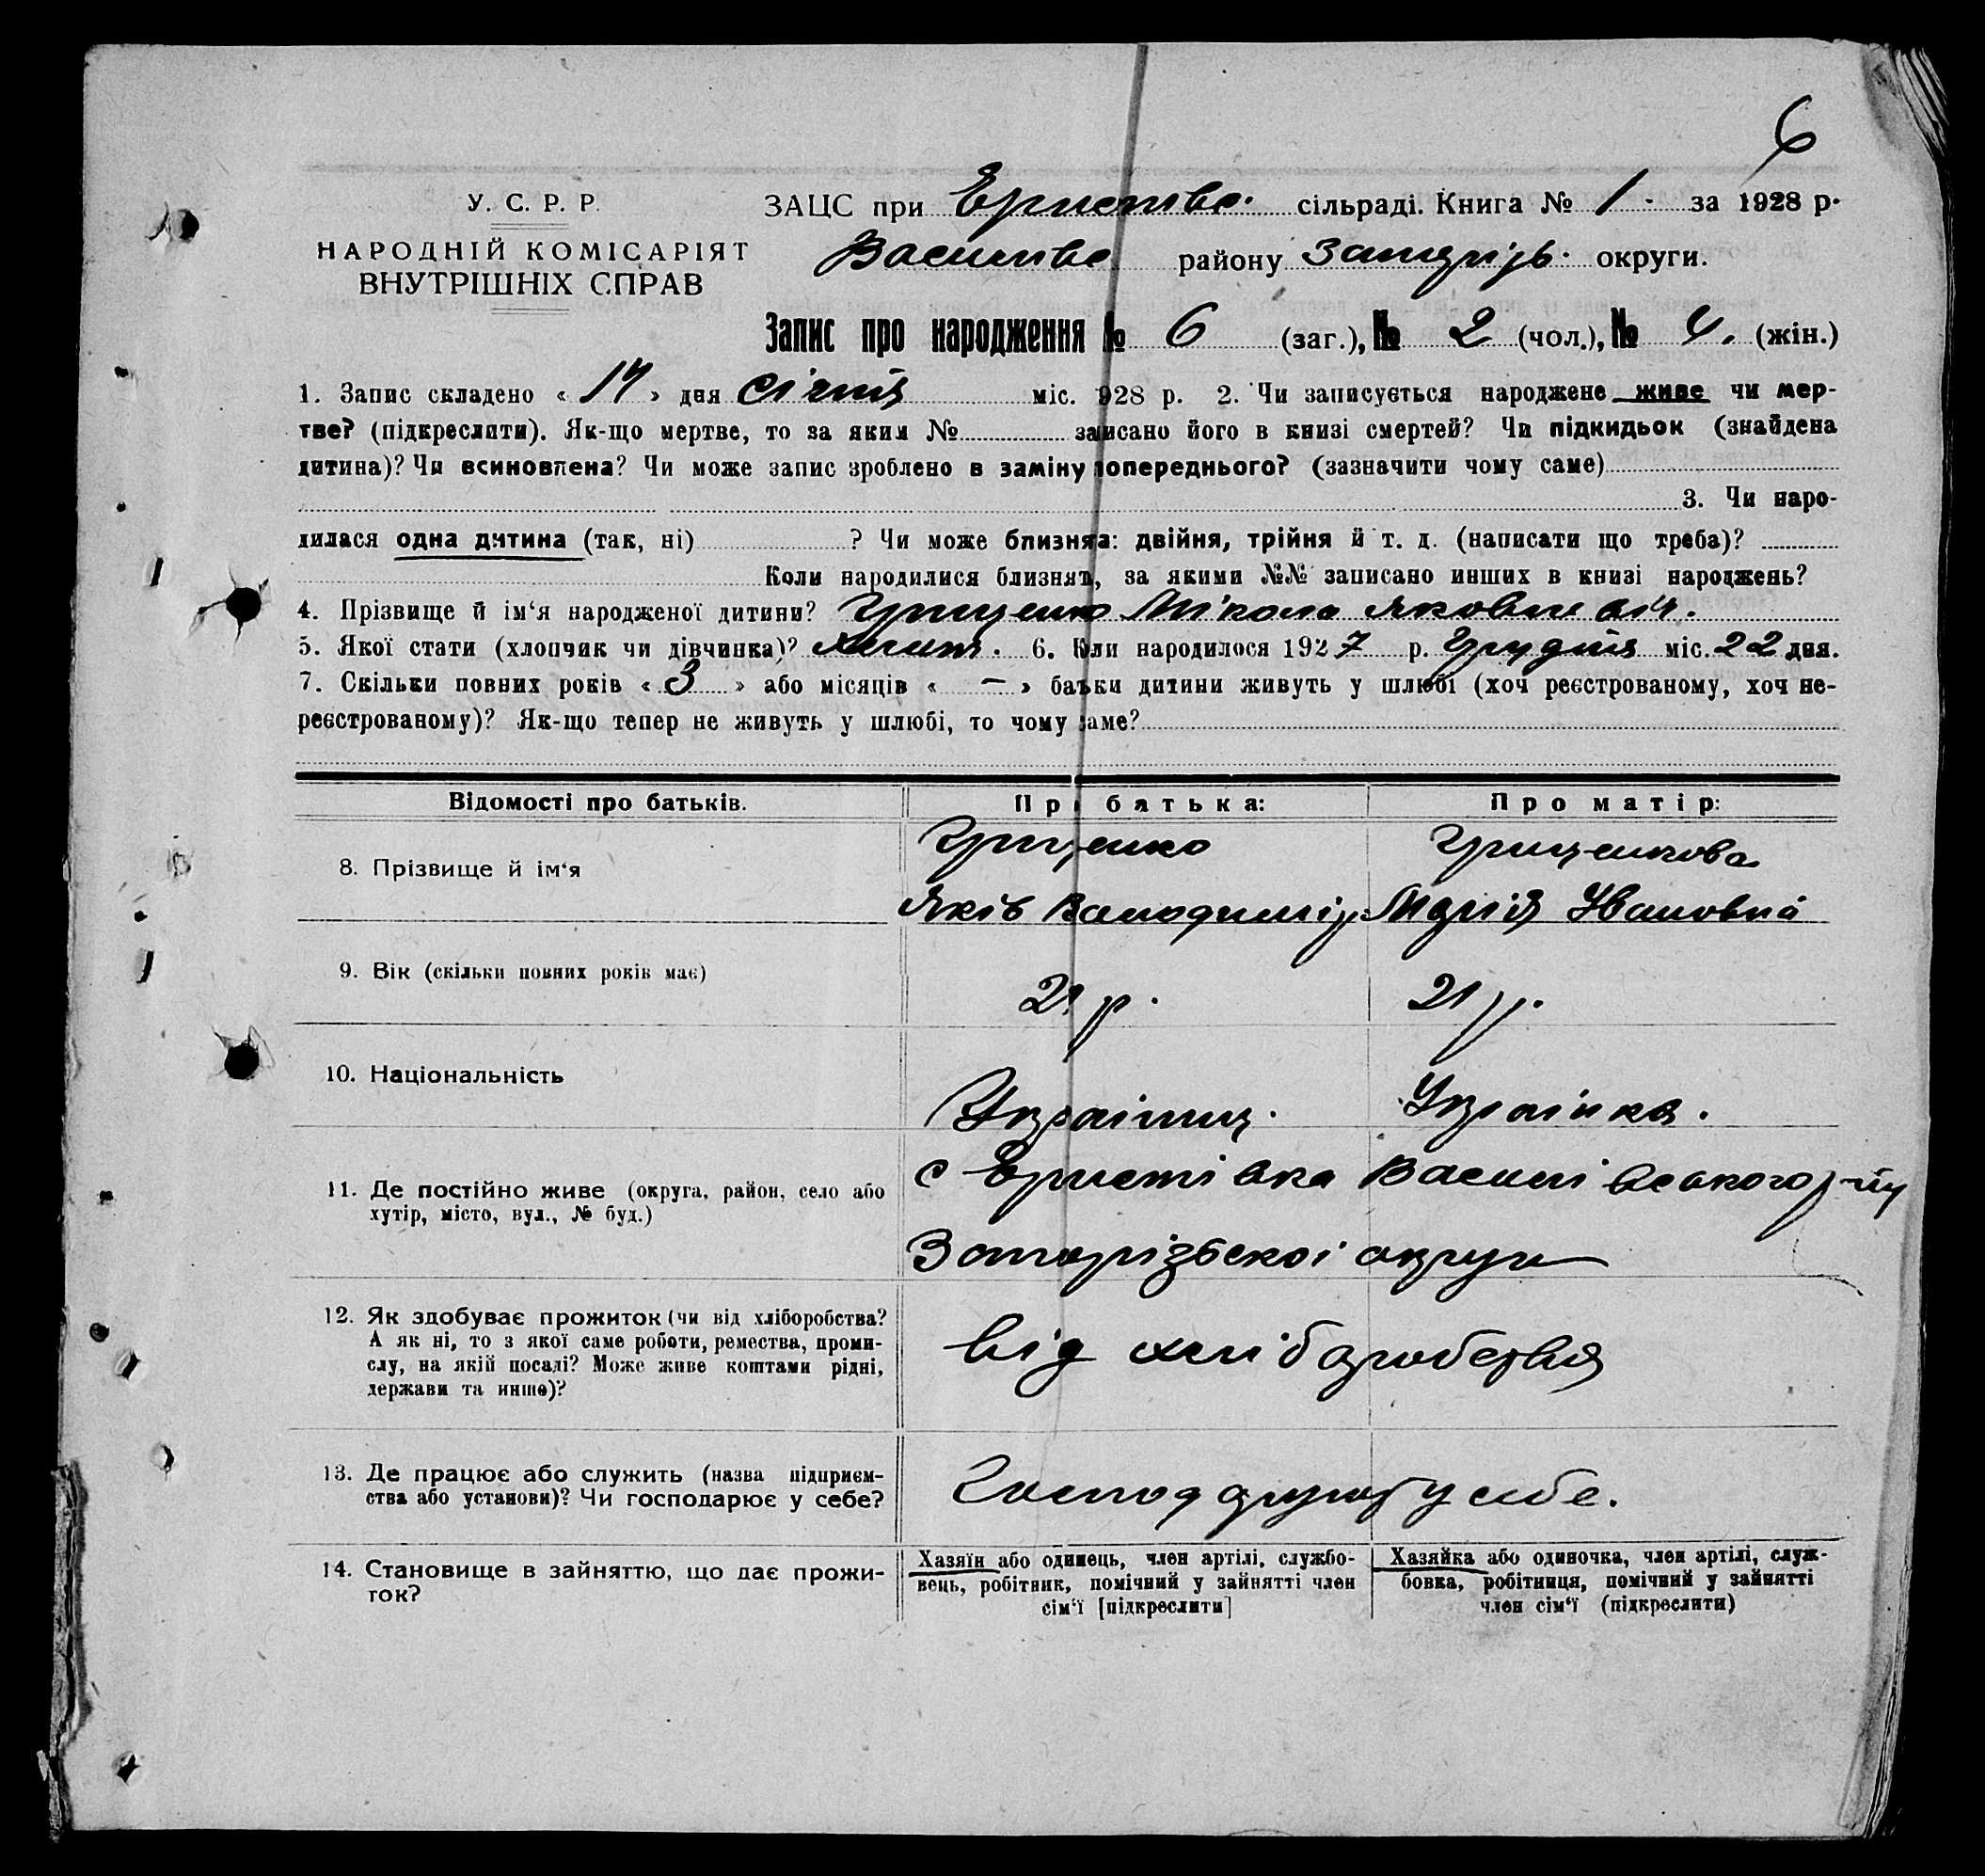 6
У. С. Р. Р.
НАРОДНІЙ КОМІСАРІЯТ
ВНУТРІШНІХ СПРАВ
ЗАЦС при Еристівс. сільраді. Книга № 1. за 1928 р.
Василівс району Запорізь. округи.
Запис про народження № 6 (заг.), № 2 (чол.), № 4. (жін.)
1. Запис складено « 14 » дня Січня міс. 1928 р. 2. Чи записується народжене живе чи мер-
тве? (підкреслити). Як-що мертве, то за яким № записано його в книзі смертей? Чи підкидьок (знайдена
дитина)? Чи всиновлена? Чи може запис зроблено в заміну попереднього? (зазначити чому саме)
3. Чи наро-
дилася одна дитина (так, ні) ? Чи може близнята: двійня, трійня й т. д. (написати що треба)?
Коли народилися близнята, за якими №№ записано инших в книзі народжень?
4. Прізвище й ім‘я народженої дитини? Грищенко Мікола Яковлевіч.
5. Якої стати (хлопчик чи дівчинка)? 6. Коли народилося 1927 р. Грудня міс. 22 дня.
7. Скільки повних років « 3 » або місяців « — » батьки дитини живуть у шлюбі (хоч реєстрованому, хоч не-
реєстрованому)? Як-що тепер не живуть у шлюбі, то чому саме?
Відомості про батьків. Про батька: Про матір:
8. Прізвище й ім‘я Грищенко Грищенкова
Яків Володимір Марія Івановна
9. Вік (скільки повних років має) 21 р. 21 р.
10. Національність Українц. Українка.
11. Де постійно живе (округа, район, село або
хутір, місто, вул., № буд.)
с Еристівка Василівського р-ну
Запорізьскої округи
12. Як здобуває прожиток (чи від хліборобства?
А як ні, то з якої саме роботи, ремества, проми-
слу, на якій посаді? Може живе коштами рідні,
держави та инше)?
від хліборобства
13. Де працює або служить (назва підприєм-
ства або установи)? Чи господарює у себе?
у себе.
14. Становище в зайняттю, що дає прожи-
ток?
Хазяїн або одинець, член артілі, службо-
вець, робітник, помічний у зайнятті член
сім‘ї [підкреслити]
Хазяйка або одиночка, член артілі, служ-
бовка, робітниця, помічний у зайнятті
член сім‘ї (підкреслити)